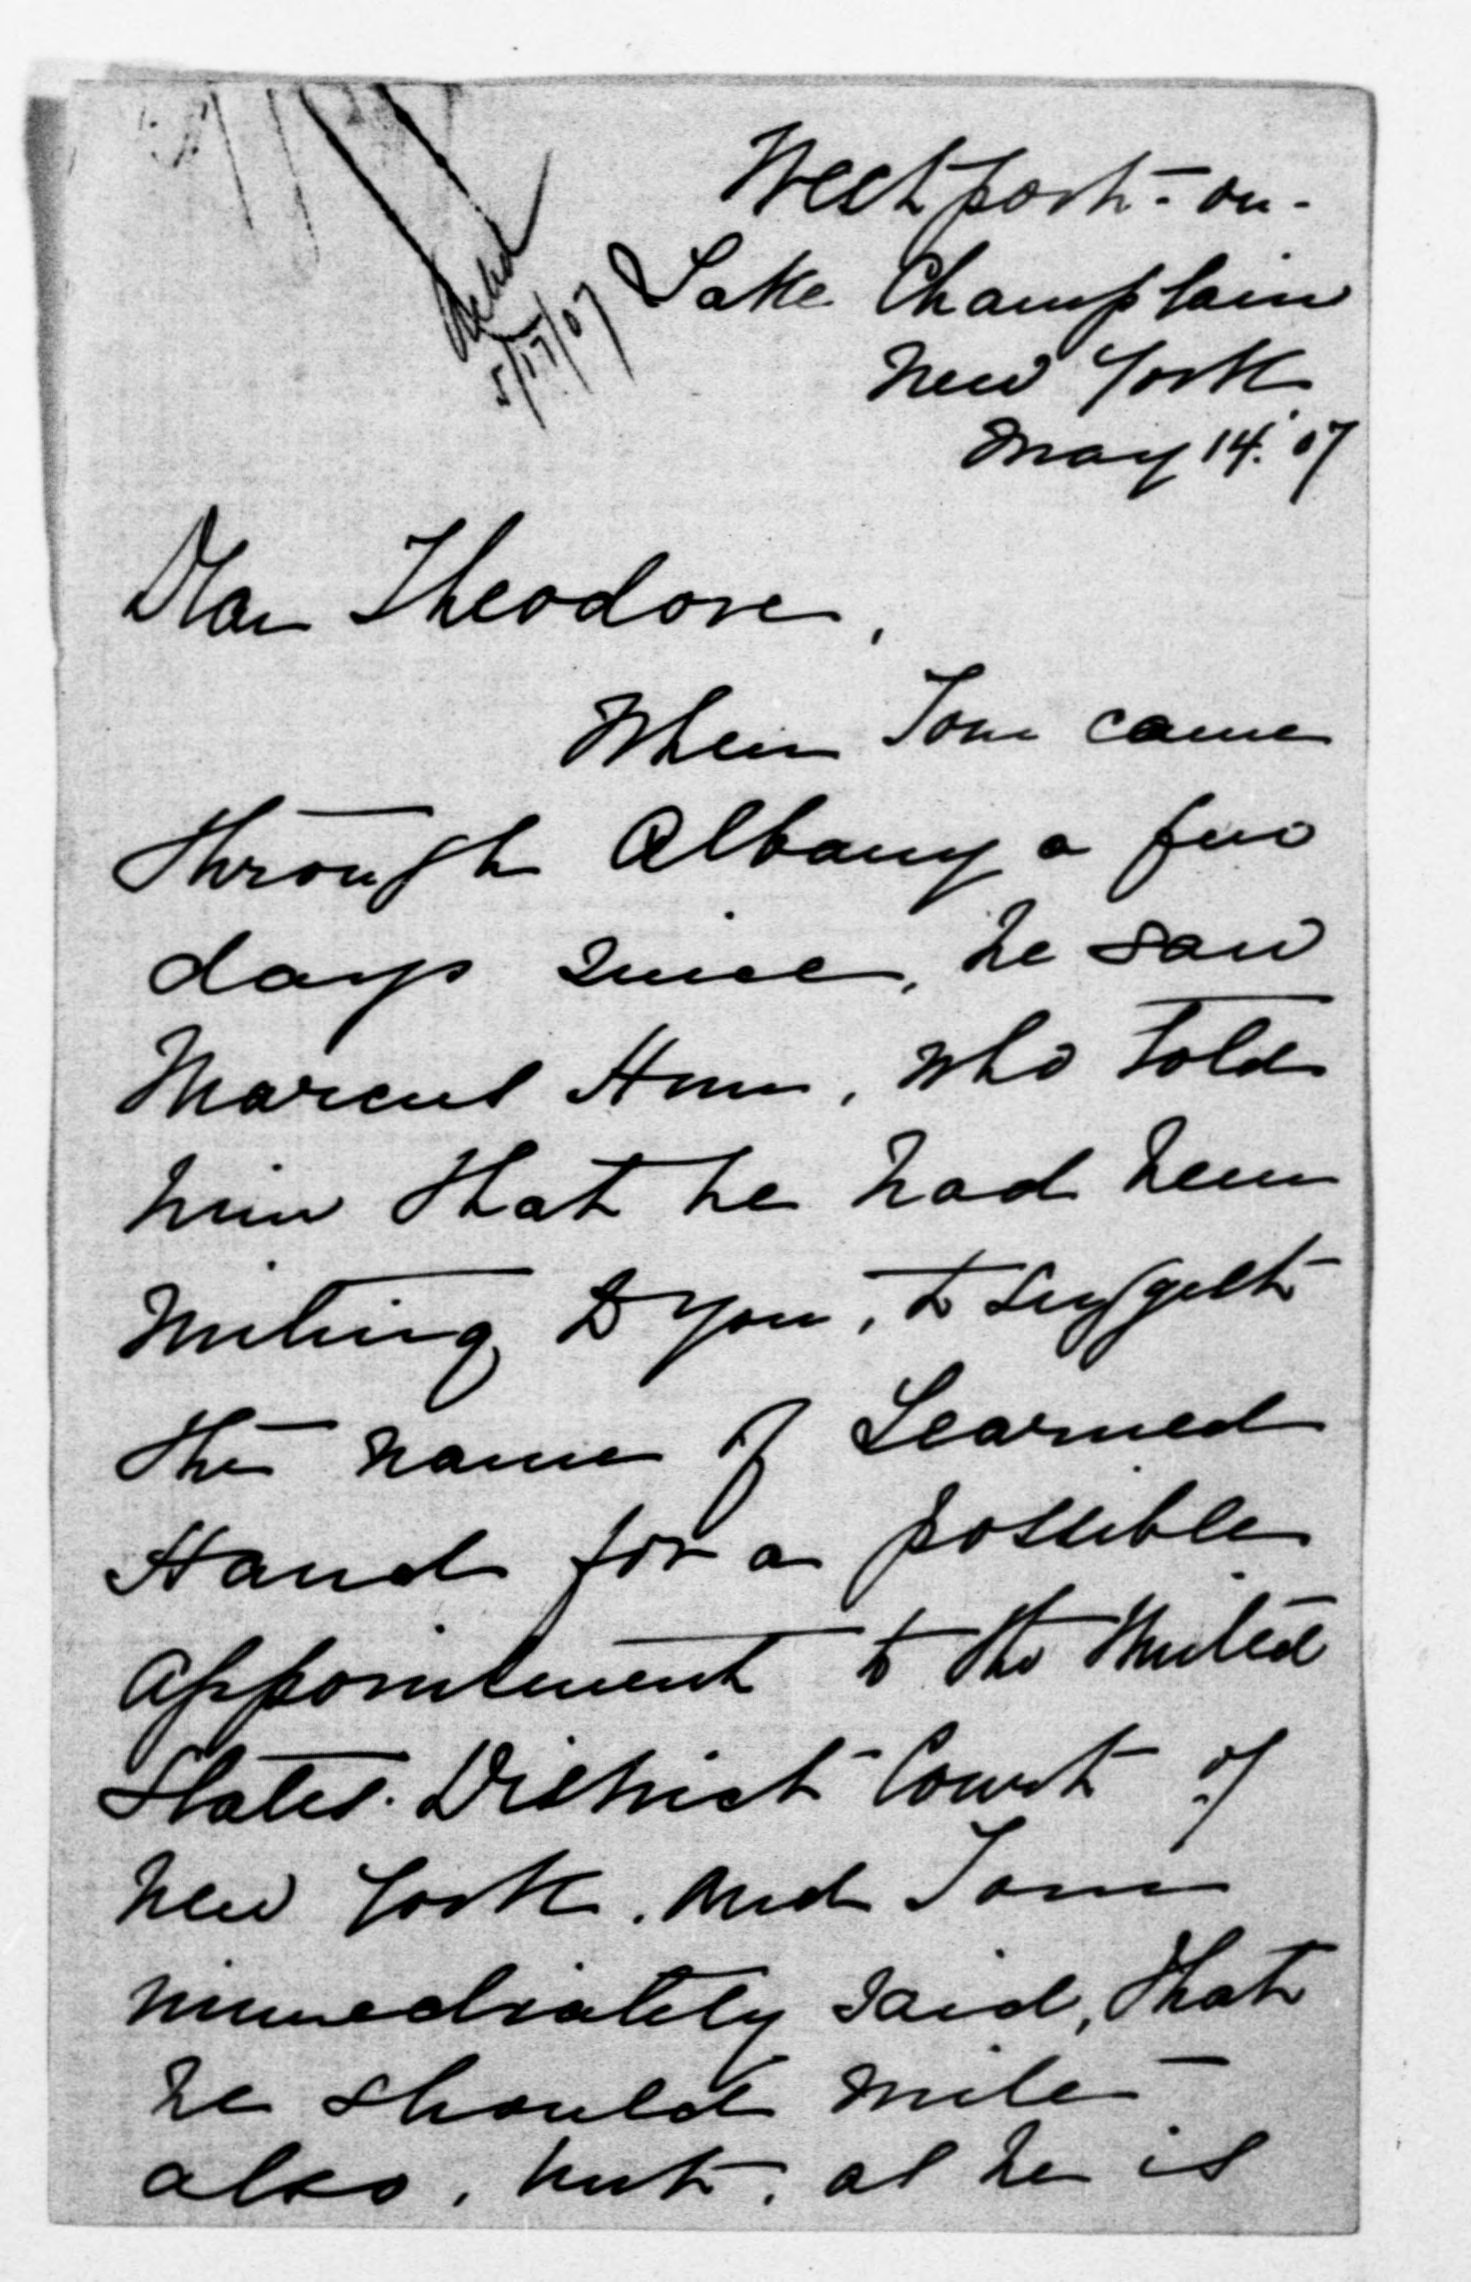 Westport-on-
Lake Champlain
New York
May 14. '07
Ackd
5/17/07
Dear Theodore,
When Tom came
through Albany a few
days since, he saw
Marcus Hun, who told
him that he had been
writing to you, to suggest
the name of Learned
Hand for a possible
appointment to the United
States District Court of
New York. And Tom
immediately said, that
he should write
also, but, as he is